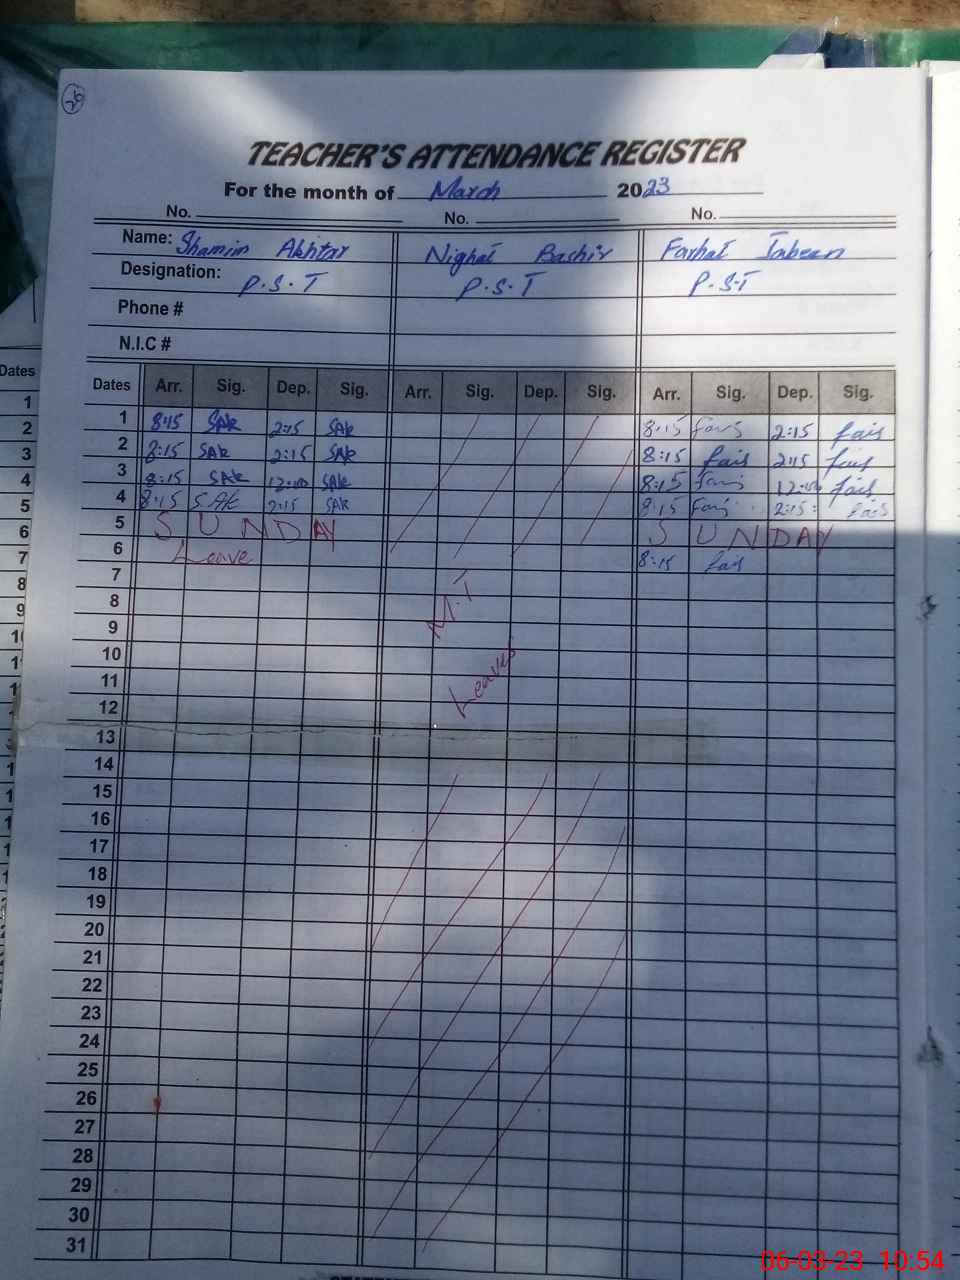 26
TEACHER'S ATTENDANCE REGISTER
For the month of March 2023
No. No. No.
Name: Shamim Akhtar Nighat Bashir Farhat Jabeen
Designation: P.S.T P.S.T P.S.T
Phone #
N.I.C #
Dates
Dates Arr. Sig. Dep. Sig. Arr. Sig. Dep. Sig. Arr. Sig. Dep. Sig.
1 8:15 SAK 2:15 SAK 8:15 2:15
2 8:15 SAK 2:15 SAK 8:15 2:15
3 8:15 SAK 12:00 SAK 8:15 12:00
4 8:15 SAK 2:15 SAK 8:15 2:15
5 SUNDAY SUNDAY
6 Leave 8:15
7
8 M.T
9
10
11 Leaves
12
13
14
15
16
17
18
19
20
21
22
23
24
25
26
27
28
29
30
31
06-03-23 10:54